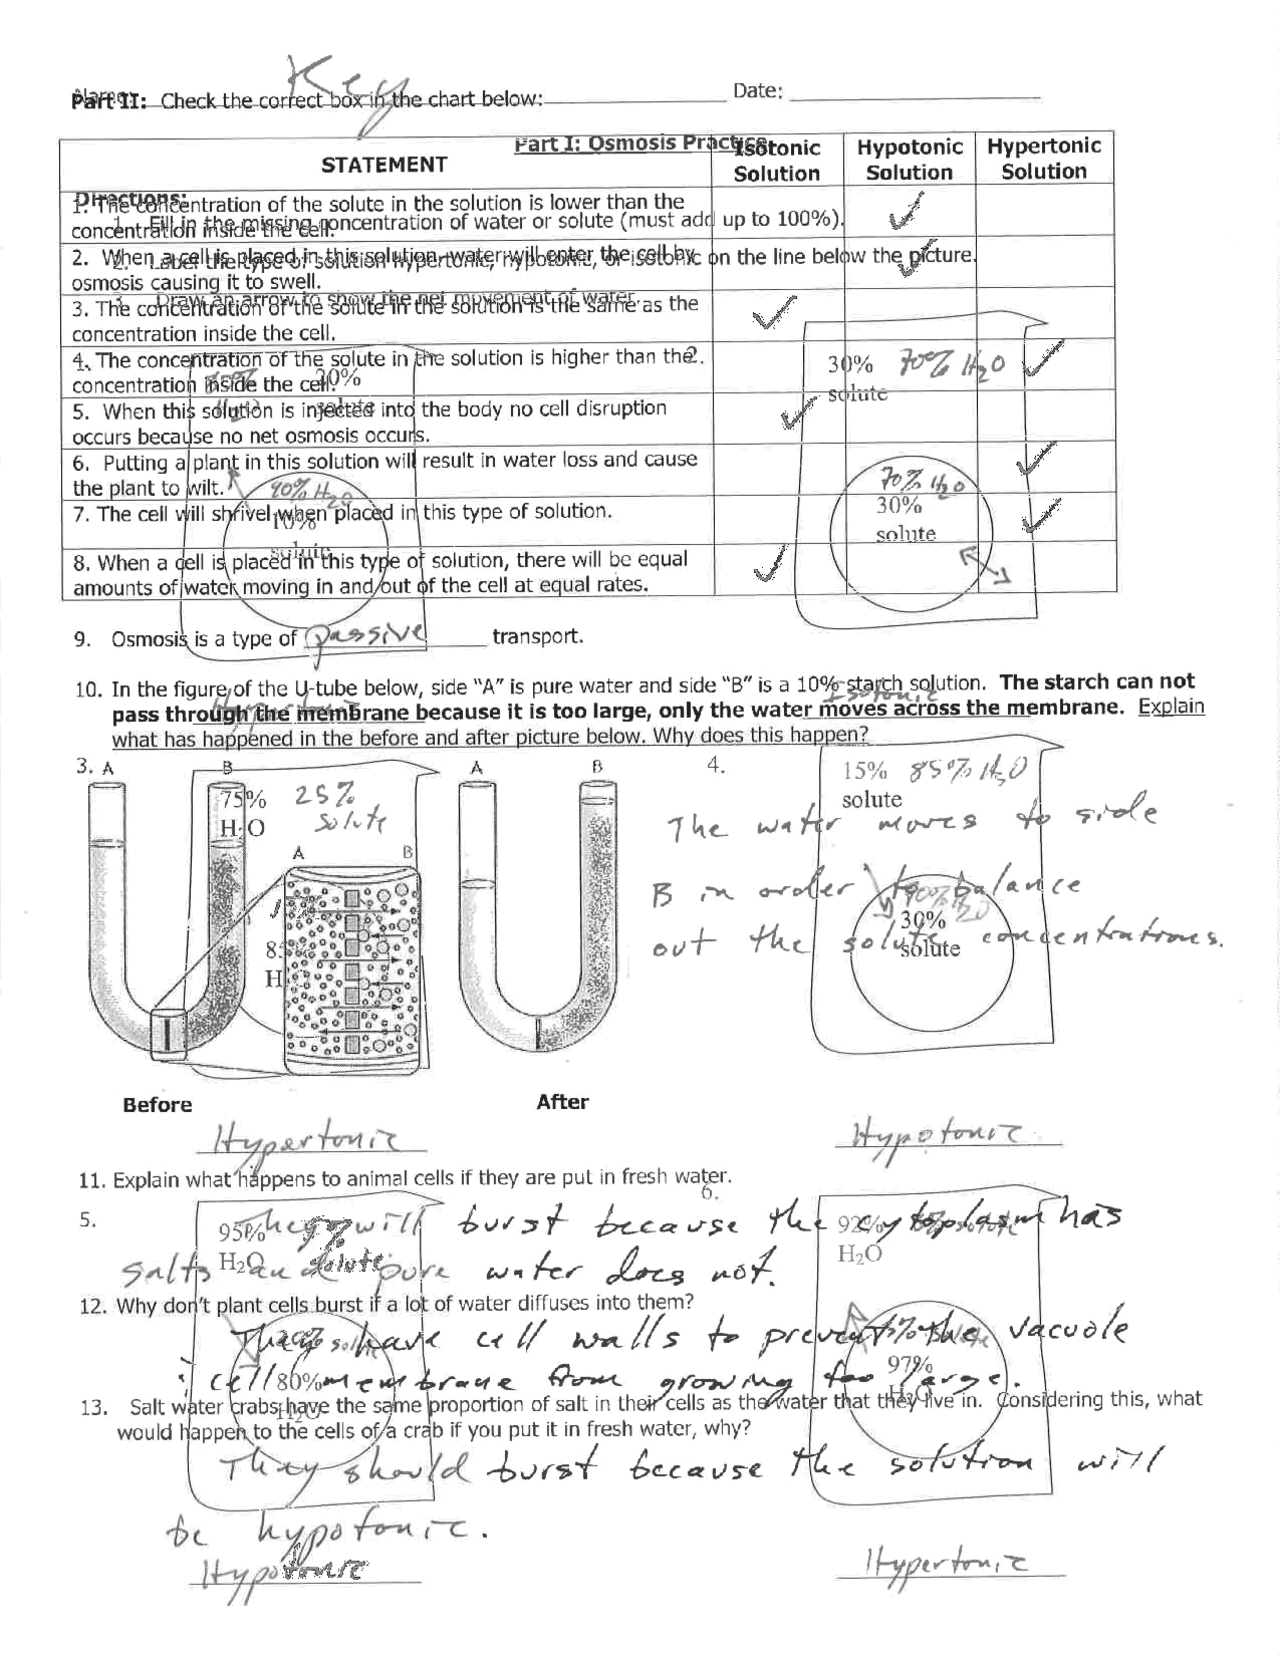 Key
Part II: Check the correct box in the chart below:
Date:
Part I: Osmosis Practice
STATEMENT
Isotonic Solution
Hypotonic Solution
Hypertonic Solution
Directions:
1. The concentration of the solute in the solution is lower than the
concentration inside the cell.
1. Fill in the missing concentration of water or solute (must add up to 100%).
2. When a cell is placed in this solution, water will enter the cell by
osmosis causing it to swell.
2. Label the type of solution hypertonic, hypotonic, or isotonic on the line below the picture.
Draw an arrow to show the net movement of water.
3. The concentration of the solute in the solution is the same as the
concentration inside the cell.
4. The concentration of the solute in the solution is higher than the
concentration inside the cell.
2.
30% 70% H2O
solute
20%
solute
5. When this solution is injected into the body no cell disruption
occurs because no net osmosis occurs.
6. Putting a plant in this solution will result in water loss and cause
the plant to wilt.
90% H2O
10%
solute
70% H2O
30%
solute
7. The cell will shrivel when placed in this type of solution.
8. When a cell is placed in this type of solution, there will be equal
amounts of water moving in and out of the cell at equal rates.
9. Osmosis is a type of passive transport.
10. In the figure of the U-tube below, side “A” is pure water and side “B” is a 10% starch solution. The starch can not
pass through the membrane because it is too large, only the water moves across the membrane. Explain
what has happened in the before and after picture below. Why does this happen?
Hypertonic
Isotonic
3. A B A B 4.
75% 25%
H2O solute
A B
15% 85% H2O
solute
The water moves to side
B in order to balance
out the solute concentrations.
30%
solute
Before After
Hypertonic Hypotonic
11. Explain what happens to animal cells if they are put in fresh water.
5. 6.
95%
H2O
92%
H2O
They will burst because the cytoplasm has
salts and pure water does not.
12. Why don't plant cells burst if a lot of water diffuses into them?
They have cell walls to prevent the vacuole
; cell membrane from growing too large.
80%
H2O
97%
H2O
13. Salt water crabs have the same proportion of salt in their cells as the water that they live in. Considering this, what
would happen to the cells of a crab if you put it in fresh water, why?
They should burst because the solution will
be hypotonic.
Hypotonic Hypertonic